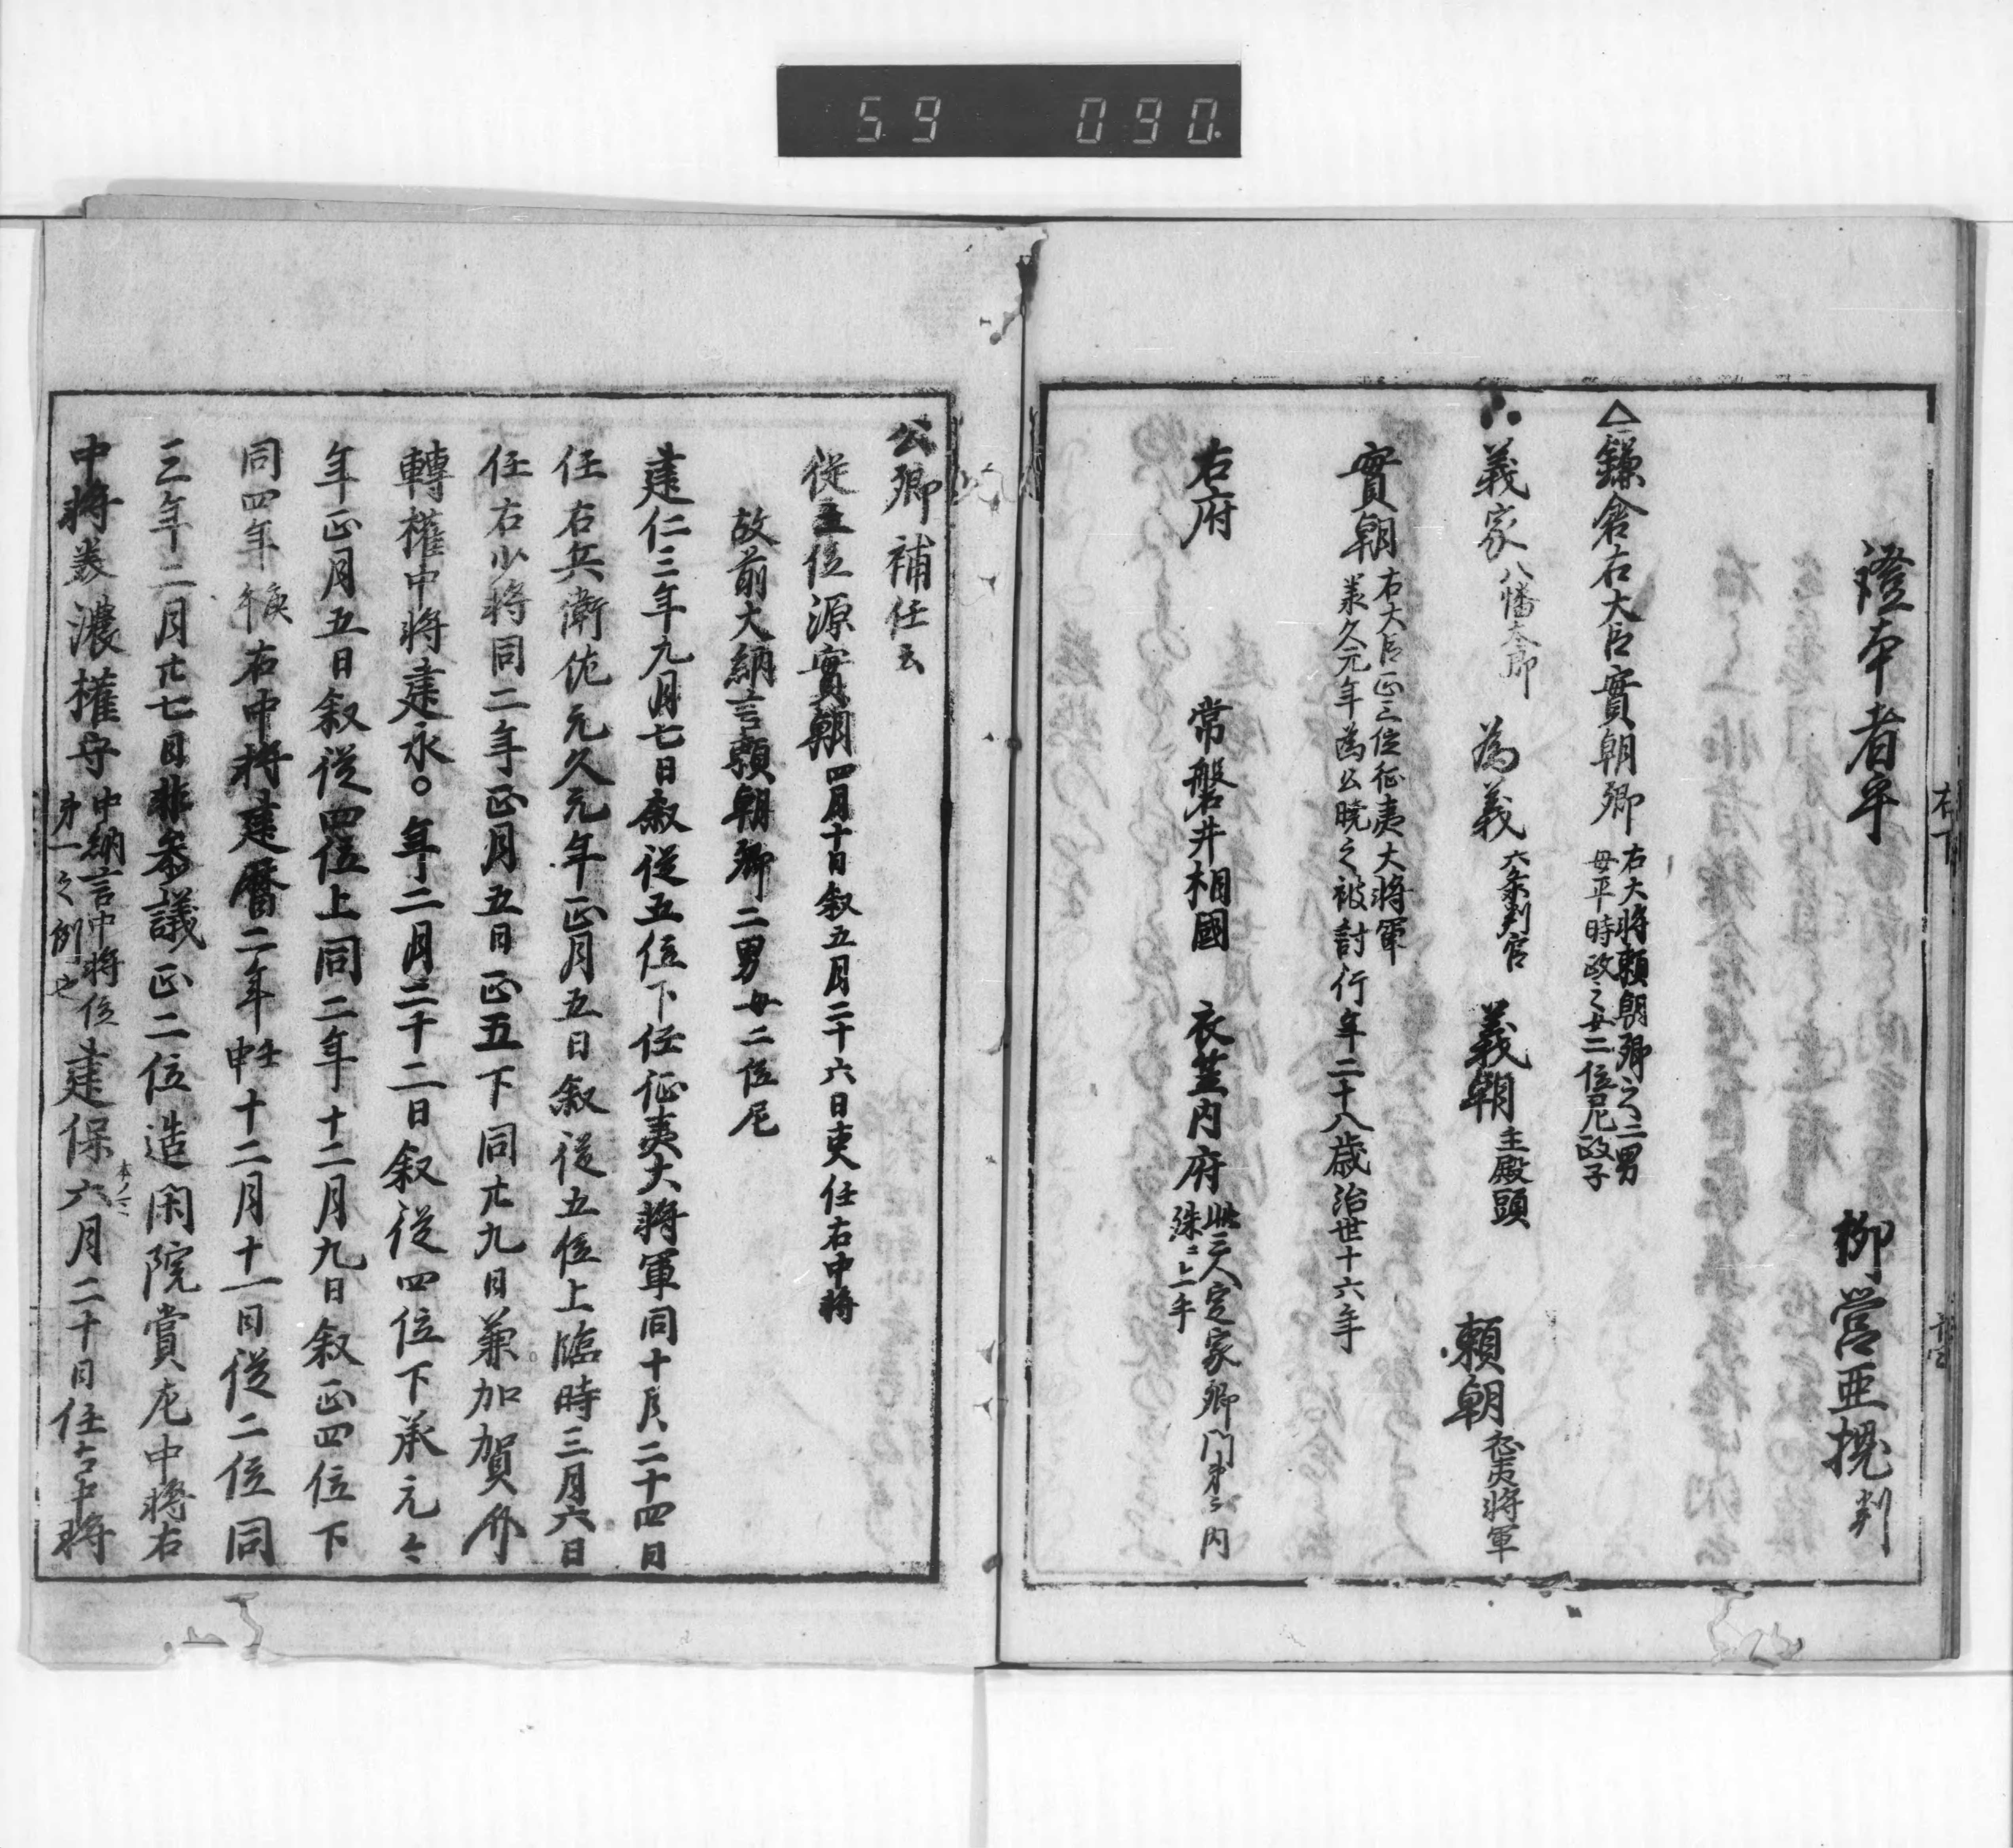 59 090
證本者乎
柳営亜槐判
△鎌倉右大臣實朝卿 右大将頼朝卿之二男
母平時政之女二位尼政子
義家 八幡太郎 為義 六条判官 義朝 主殿頭 頼朝 征夷将軍
實朝 右大臣正二位征夷大将軍
羕久元年為公暁之被討行年二十八歳治世十六年
右府 常磐井相國 衣笠内府 此三人定家卿門弟之内
殊ニ上手
公卿補任云
從三位源實朝 四月十日叙五月二十六日更任右中将
故前大納言頼朝卿二男母二位尼
建仁三年九月七日叙從五位下任征夷大将軍同十月二十四日
任右兵衛佐元久元年正月五日叙從五位上臨時三月六日
任右少将同二年正月五日正五下同廿九日兼加賀介
轉權中将建永〇年二月二十二日叙從四位下承元々
年正月五日叙從四位上同二年十二月九日叙正四位下
同四年庚午右中将建暦二年壬申十二月十一日從二位同
三年二月廿七日非参議正二位造閑院賞左中将右
中将美濃權守 中納言中将位
弟一之例也 建保六月二十日任右中将